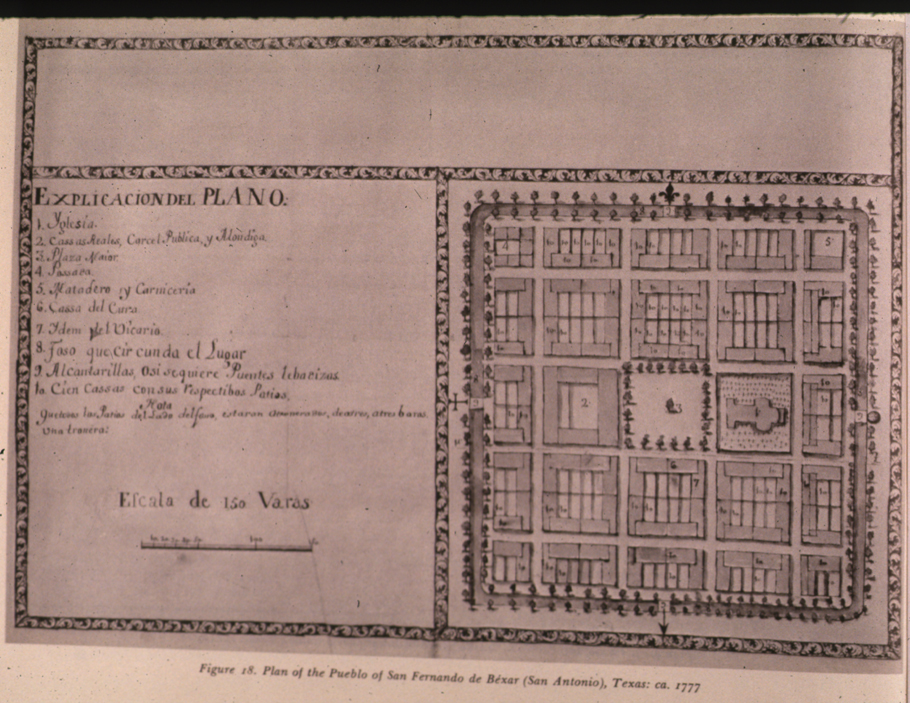 EXPLICACION DEL PLANO.
1. Yglesia.
2. Cassas Reales, Carcel Publica, y Alondiga.
3. Plaza Maior.
4. Possada.
5. Matadero y Carniceria
6. Cassa del Cura.
7. Ydem del Vicario.
8. Foso que cir cunda el Lugar
9. Alcantarillas, ò si se quiere Puentes lebadizas.
10 Cien Cassas con sus respectibos Patios.
Nota
Que todos los Patios del Lado del foso, estaran
una tronera:
Escala de 150 Varas
Figure 18. Plan of the Pueblo of San Fernando de Béxar (San Antonio), Texas: ca. 1777